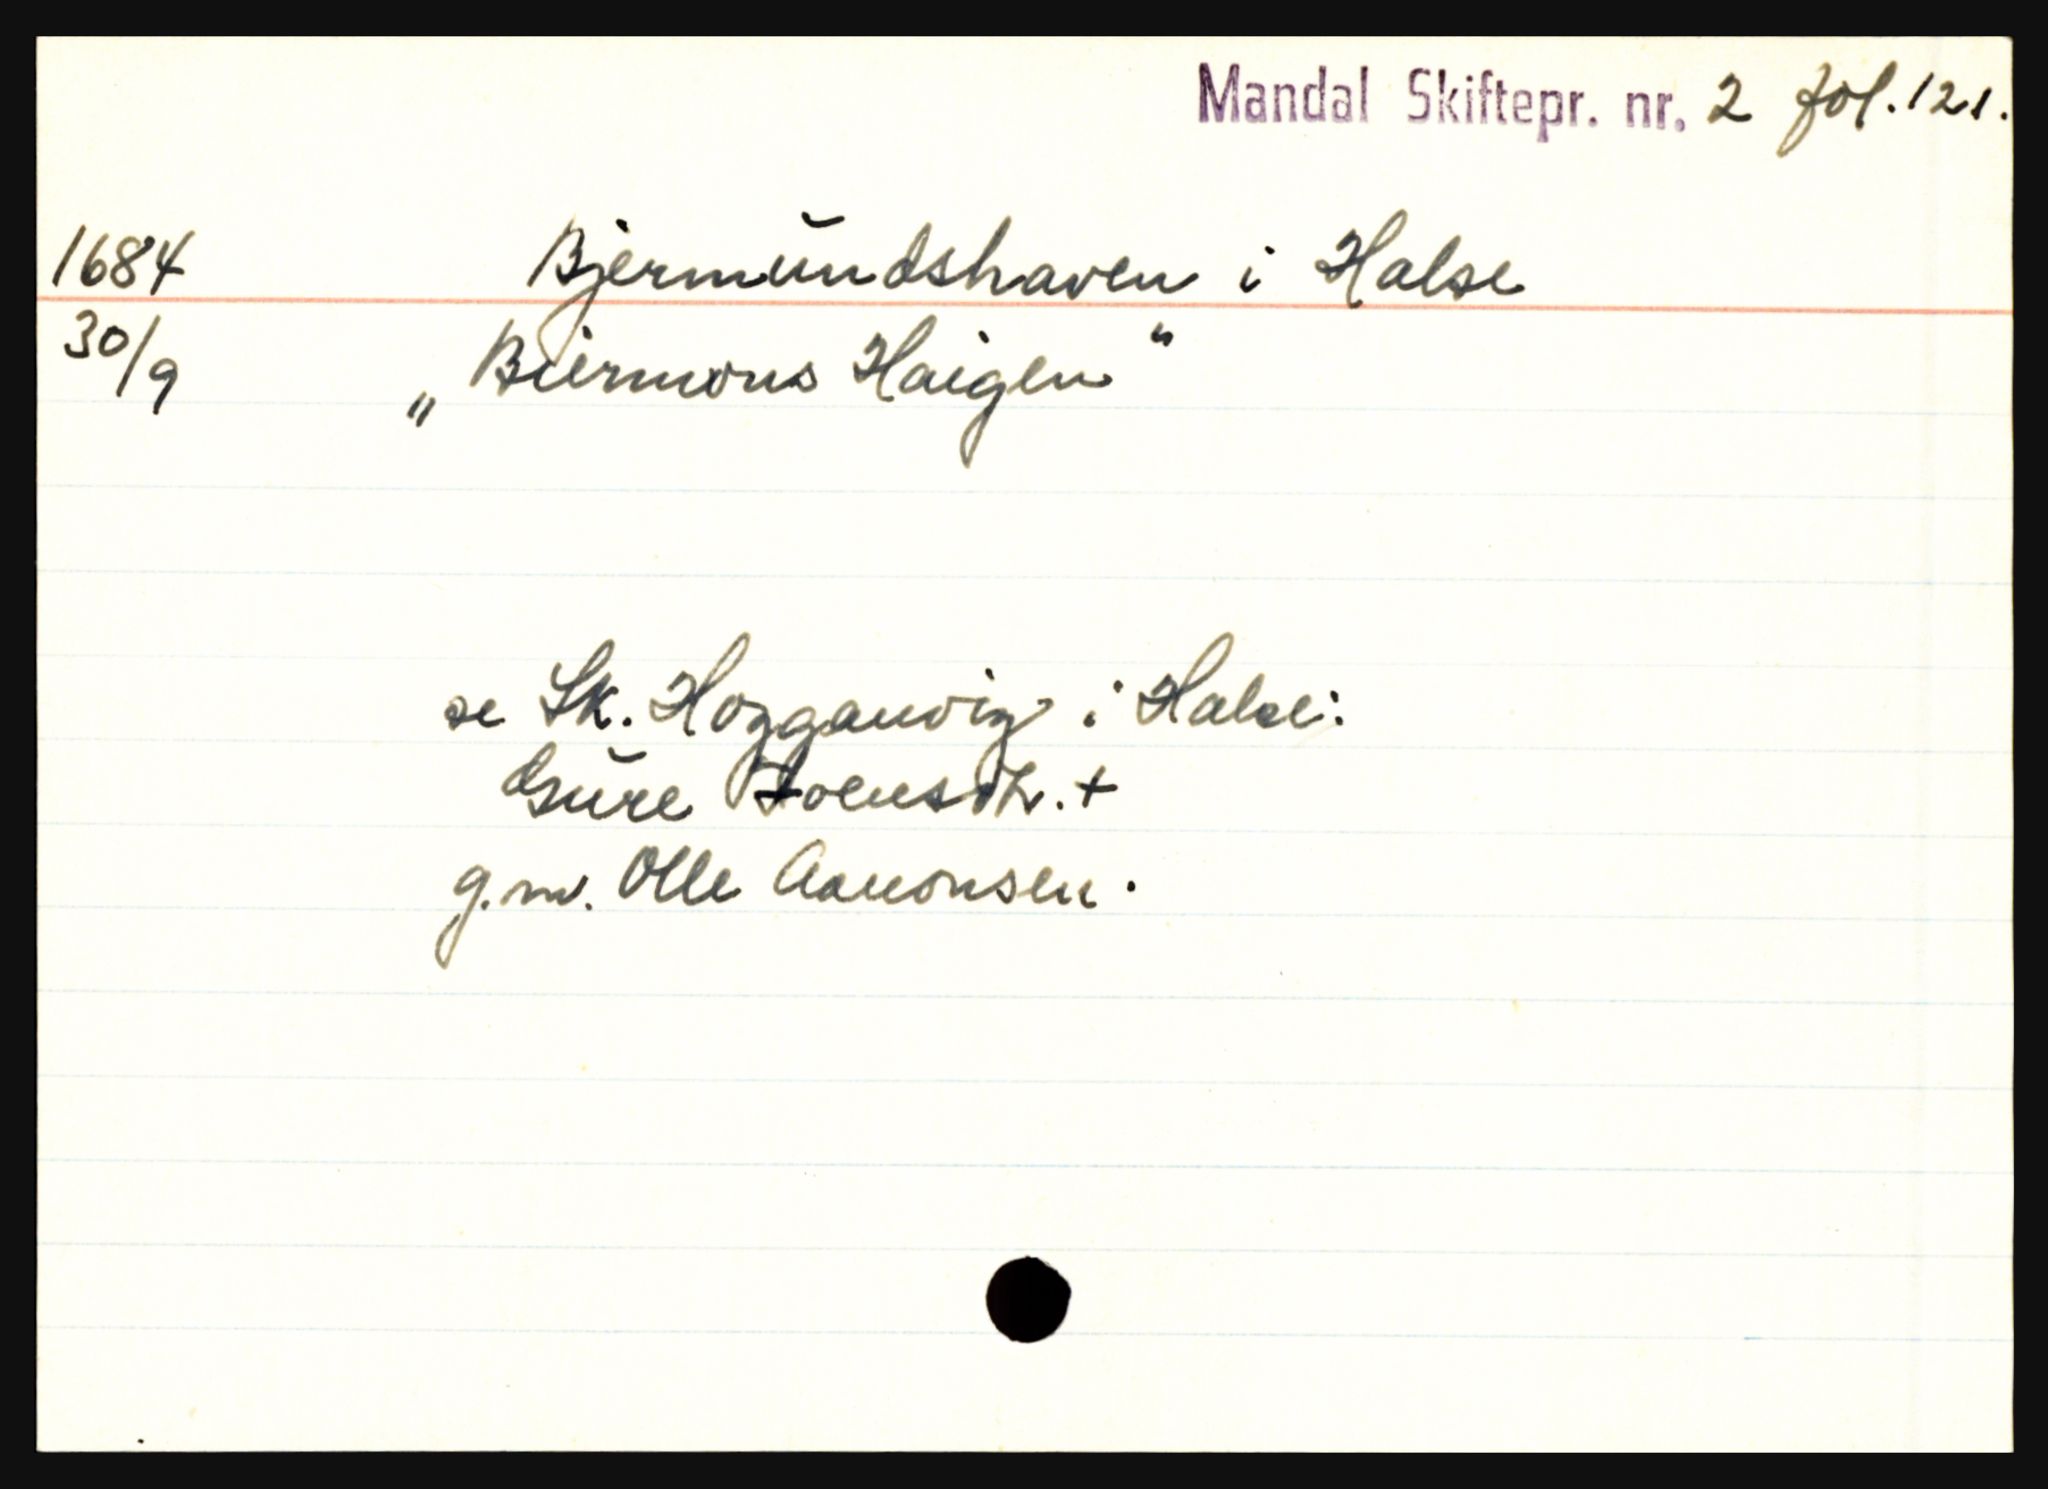 Mandal Skiftepr. nr. 2 fol. 121.
1684 Bjermundshaven i Halse
30/9 „Biermons Haigen“
se Sk. Hogganvig i Halse:
Gure Joensdt. +
g.m. Olle Aanonsen.